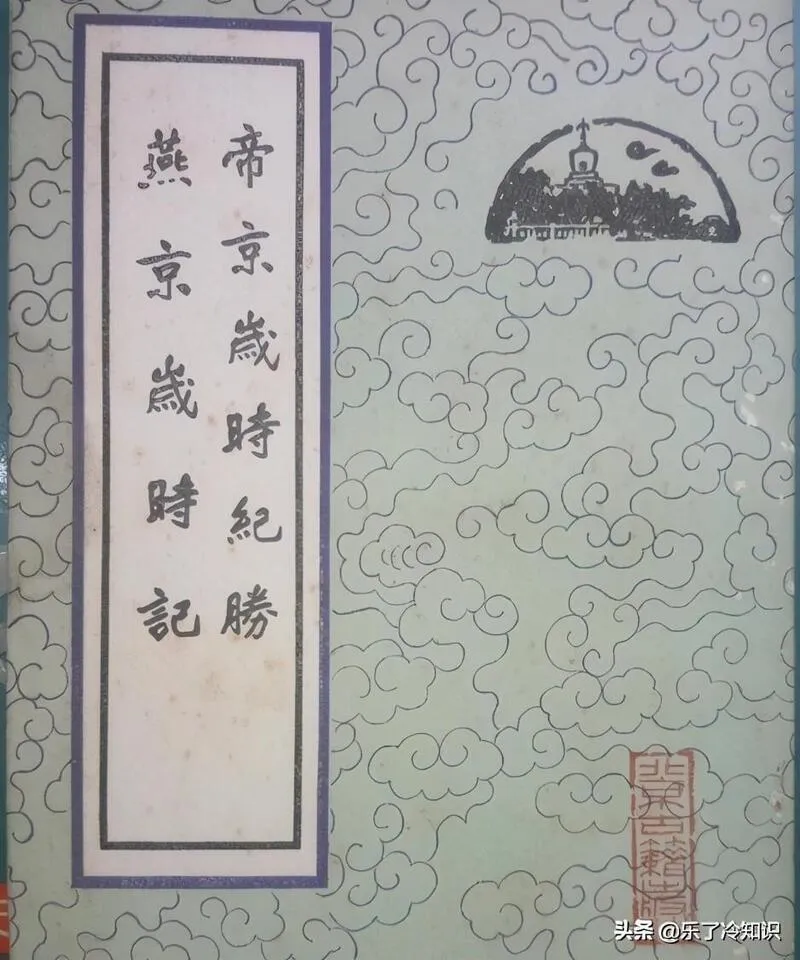 帝京歲時紀勝
燕京歲時記
北京古籍叢書
头条 @乐了冷知识